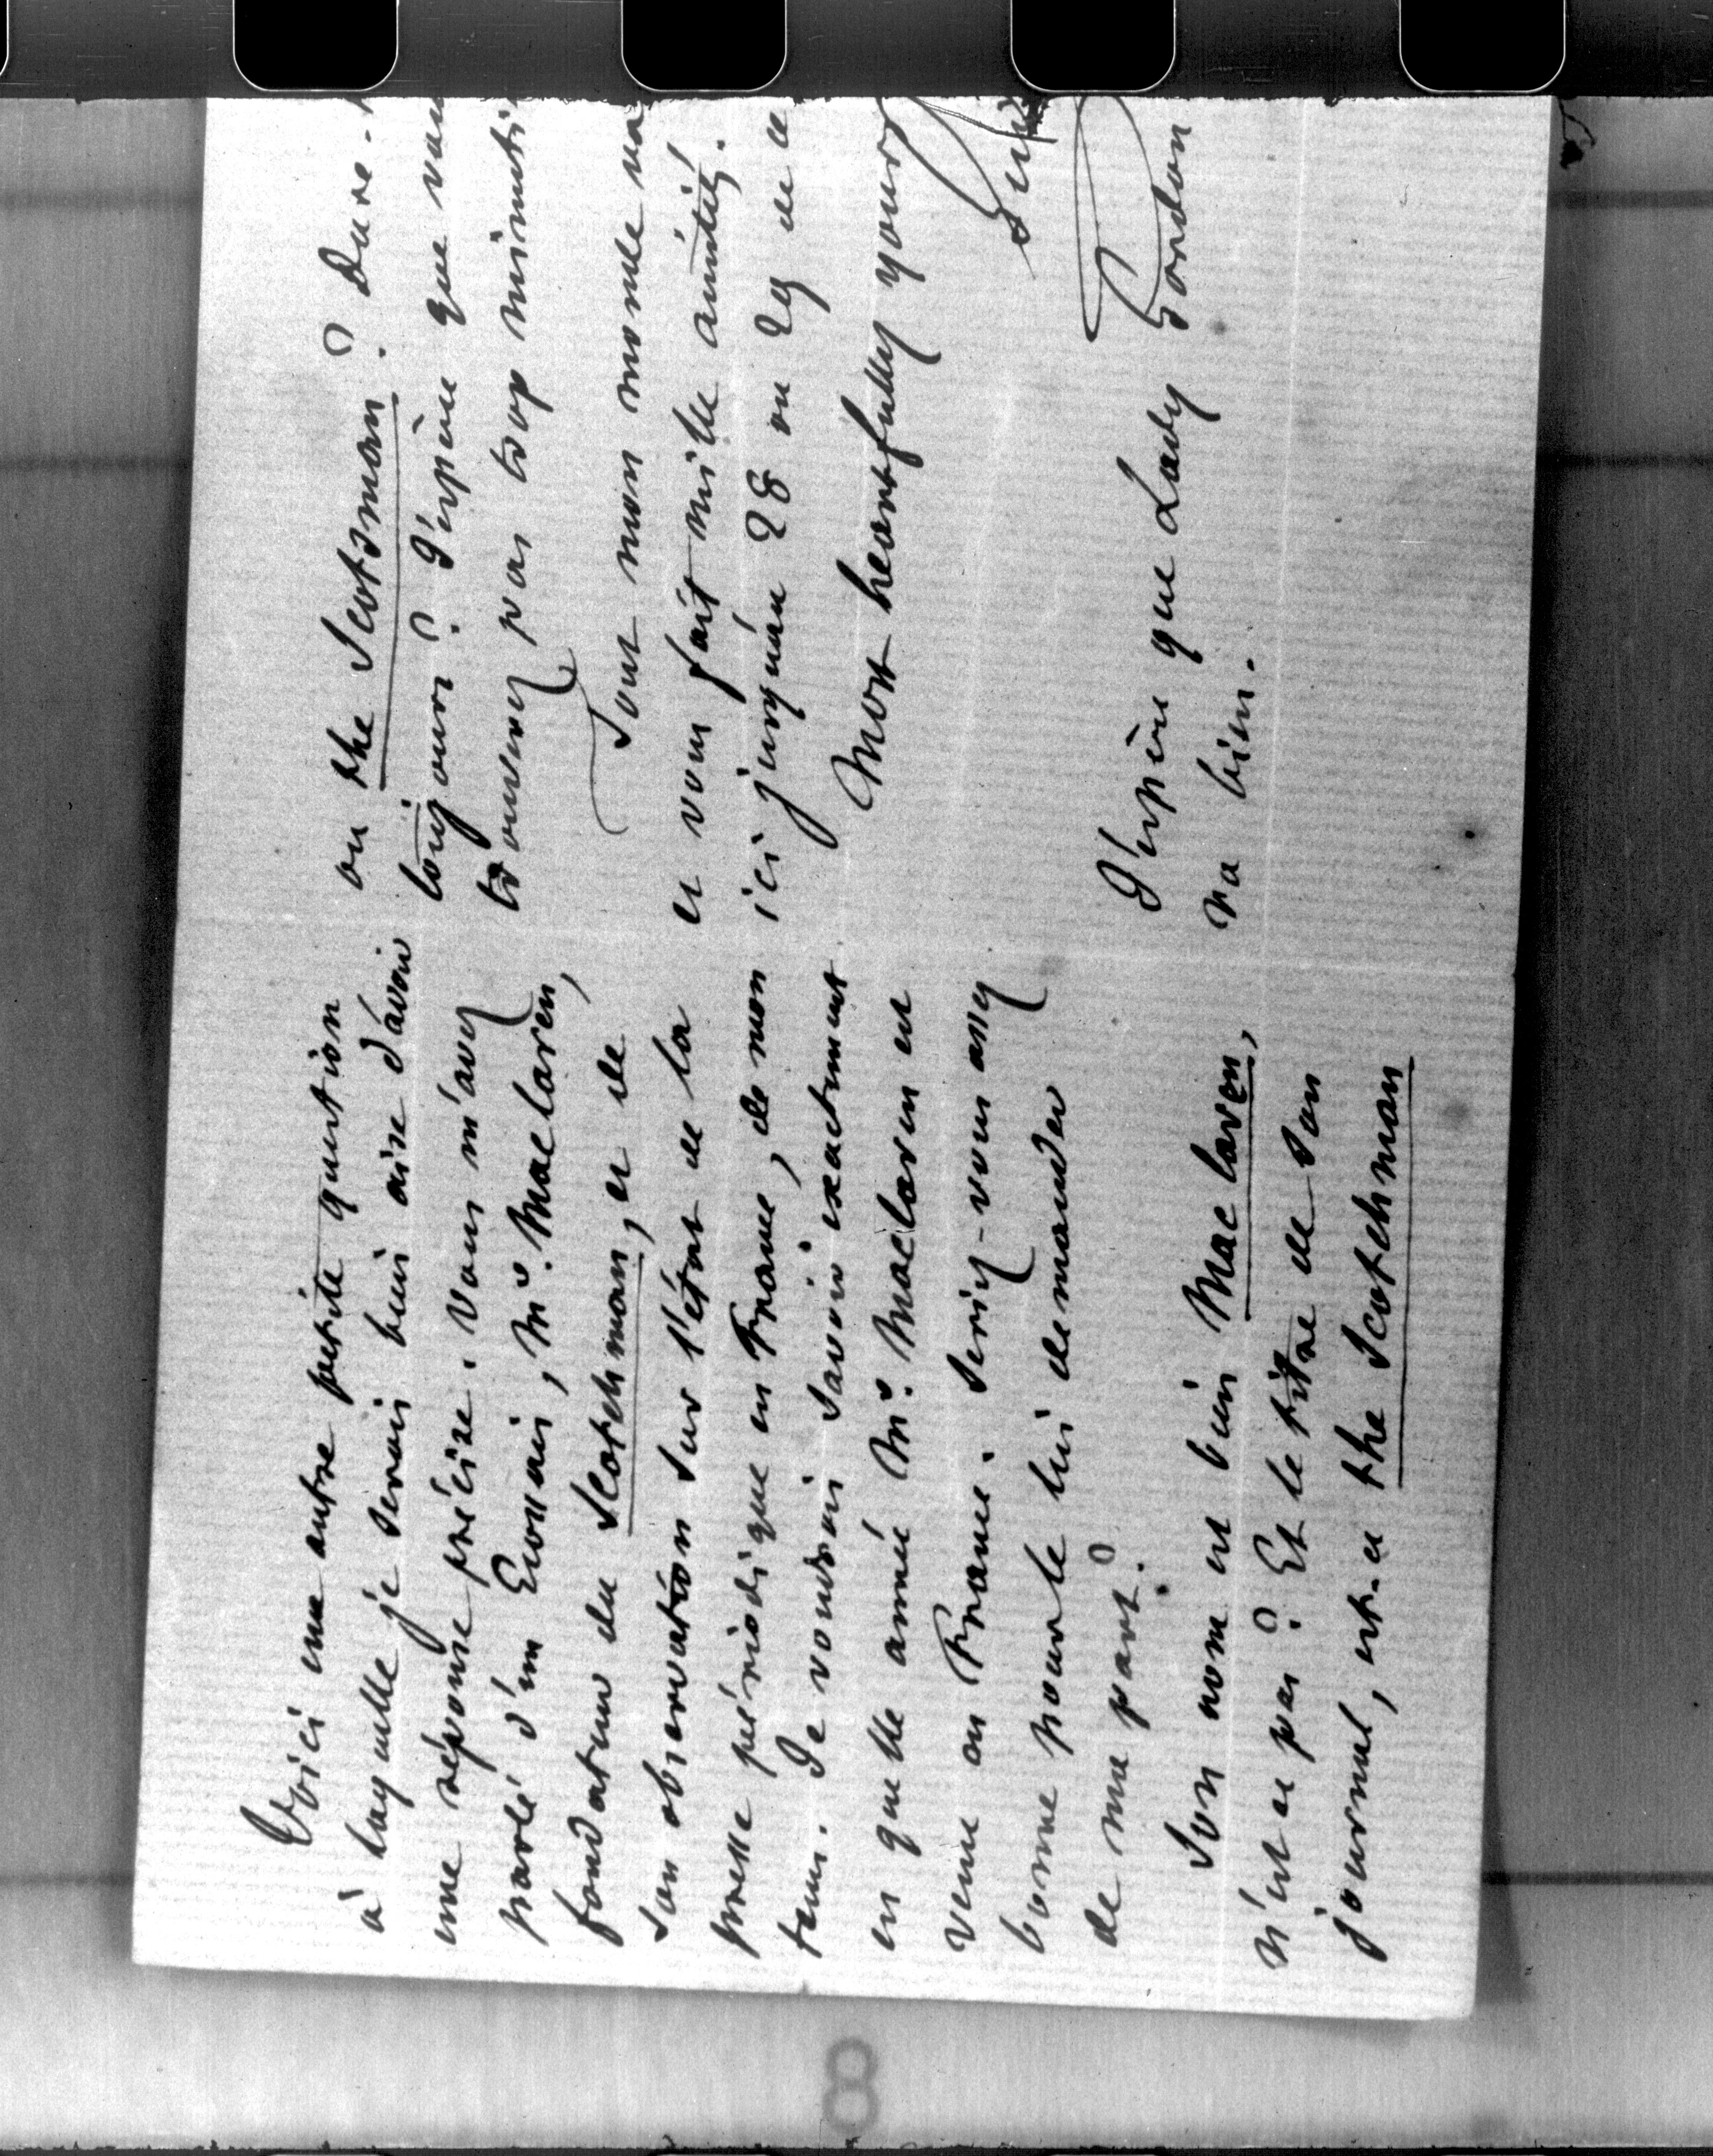 Voici une autre petite question
à laquelle je serais bien aise d'avoir
une réponse précise. Vous m'avez
parlé d'un Ecossais, Mr. Mac laren,
fondateur du Scotchman, et de
son observation sur l'état de la
presse périodique en France, de mon
tems. Je voudrais savoir exactement
en quelle année Mr. Maclaren est
venu en France. Seriez-vous assez
bonne pour le lui demander
de ma part?
Son nom est bien Mac laren,
n'est ce pas? Et le titre de son
journal, est-ce the Scotchman
ou the Scotsman? Dure-t
toujours? J'espère que vous
trouverez pas trop minuti
Tout mon monde va
et vous fait mille amitiés.
ici jusqu'au 28 ou 29 de ce
Most heartfully yours
Guiz
J'espère que Lady Gordon
va bien.
8